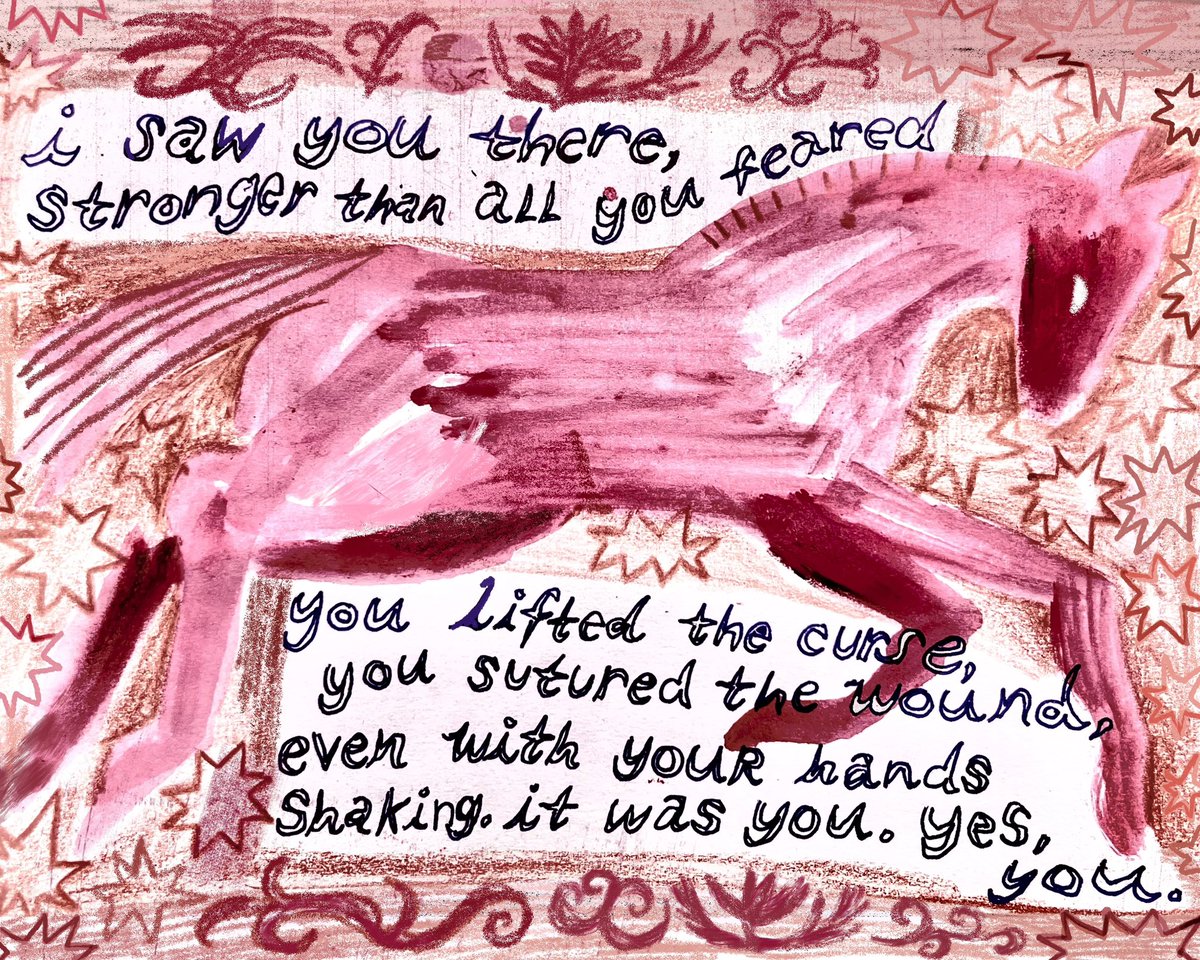 i saw you there, feared
stronger than all you
you lifted the curse,
you sutured the wound,
even with your hands
Shaking. it was you. yes,
you.